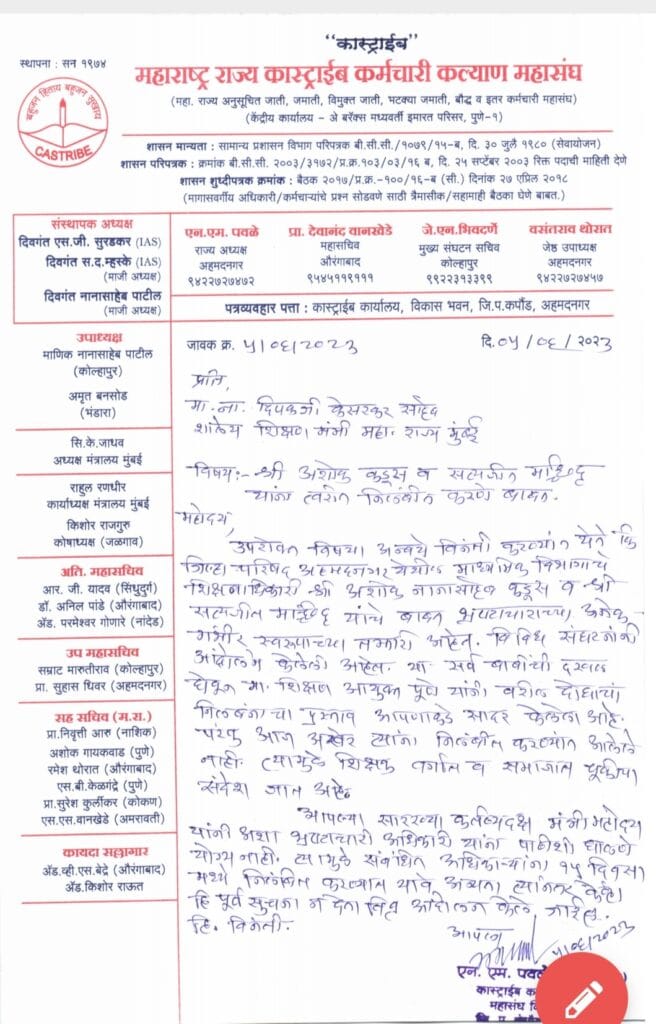 "कास्ट्राईब"
स्थापना : सन १९७४
महाराष्ट्र राज्य कास्ट्राईब कर्मचारी कल्याण महासंघ
(महा. राज्य अनुसूचित जाती, जमाती, विमुक्त जाती, भटक्या जमाती, बौद्ध व इतर कर्मचारी महासंघ)
(केंद्रीय कार्यालय - अे बरॅक्स मध्यवर्ती इमारत परिसर, पुणे-१)
बहुजन हिताय बहुजन सुखाय
CASTRIBE
शासन मान्यता : सामान्य प्रशासन विभाग परिपत्रक बी.सी.सी./१०७९/१५-ब, दि. ३० जुलै १९८० (सेवायोजन)
शासन परिपत्रक : क्रमांक बी.सी.सी. २००३/३१७२/प्र.क्र.१०३/०३/१६ ब, दि. २५ सप्टेंबर २००३ रिक्त पदाची माहिती देणे
शासन शुध्दीपत्रक क्रमांक : बैठक २०१७/प्र.क्र.-१००/१६-ब (सी.) दिनांक २७ एप्रिल २०१८
(मागासवर्गीय अधिकारी/कर्मचाऱ्यांचे प्रश्न सोडवणे साठी त्रैमासीक/सहामाही बैठका घेणे बाबत.)
संस्थापक अध्यक्ष
दिवंगत एस.जी. सुरडकर (IAS)
दिवंगत स.द.म्हस्के (IAS)
(माजी अध्यक्ष)
दिवंगत नानासाहेब पाटील
(माजी अध्यक्ष)
एन.एम. पवळे
राज्य अध्यक्ष
अहमदनगर
९४२२७२७४७२
प्रा. देवानंद वानखेडे
महासचिव
औरंगाबाद
९५४५११९१११
जे.एन.भिवदर्णे
मुख्य संघटन सचिव
कोल्हापुर
९९२२३१३३९९
वसंतराव थोरात
जेष्ठ उपाध्यक्ष
अहमदनगर
९४२२७२७४५७
पत्रव्यवहार पत्ता : कास्ट्राईब कार्यालय, विकास भवन, जि.प.कपौंड, अहमदनगर
उपाध्यक्ष
माणिक नानासाहेब पाटील
(कोल्हापुर)
अमृत बनसोड
(भंडारा)
सि.के.जाधव
अध्यक्ष मंत्रालय मुंबई
राहुल रणधीर
कार्याध्यक्ष मंत्रालय मुंबई
किशोर राजगुरु
कोषाध्यक्ष (जळगाव)
अति. महासचिव
आर. जी. यादव (सिंधुदुर्ग)
डॉ. अनिल पांडे (औरंगाबाद)
अॅड. परमेश्वर गोणारे (नांदेड)
उप महासचिव
सम्राट मारुतीराव (कोल्हापुर)
प्रा. सुहास धिवर (अहमदनगर)
सह सचिव (म.रा.)
प्रा.निवृत्ती आरु (नाशिक)
अशोक गायकवाड (पुणे)
रमेश थोरात (औरंगाबाद)
एस.बी.केळगंद्रे (पुणे)
प्रा.सुरेश कुर्लीकर (कोकण)
एस.एस.वानखेडे (अमरावती)
कायदा सल्लागार
अॅड.व्ही.एस.बेद्रे (औरंगाबाद)
अॅड.किशोर राऊत
जावक क्र. ५/०६/२०२३ दि.०५/०६/२०२३
प्रति,
मा. ना. दिपकजी केसरकर साहेब
शालेय शिक्षण मंत्री महा. राज्य मुंबई
विषय:- श्री अशोक कडूस व सत्यजीत माच्छिंद्र
यांना त्वरीत निलंबीत करणे बाबत.
महोदय,
उपरोक्त विषया अन्वये विनंती करण्यांत येते कि
जिल्हा परिषद अहमदनगर येथील माध्यमिक विभागाचे
शिक्षणाधिकारी श्री अशोक नानासाहेब कडूस व श्री
सत्यजीत माच्छिंद्र यांचे बाबत भ्रष्टाचाराच्या अनेक
गंभीर स्वरूपाच्या तक्रारी आहेत. विविध संघटनांनी
आंदोलने केलेली आहेत. या सर्व बाबींची दखल
घेवून मा. शिक्षण आयुक्त पुणे यांनी वरील दोघांचा
निलंबनाचा प्रस्ताव आपणाकडे सादर केलेला आहे.
परंतु आज अखेर त्यांना निलंबीत करण्यांत आलेले
नाही. त्यामुळे शिक्षक वर्गात व समाजात चूकीचा
संदेश जात आहे.
आपल्या सारख्या कर्तव्यदक्ष मंत्री महोदय
यांनी अशा भ्रष्टाचारी अधिकारी यांना पाठीशी घालणे
योग्य नाही. त्यामुळे संबंधित अधिकाऱ्यांना १५ दिवसा
मध्ये निलंबीत करण्यात यावे अन्यता त्यानंतर केव्हा
हि पूर्व सुचना न देता तिव्र आंदोलन केले जाईल.
हि. विनंती.
आपला
५/०६/२०२३
एन. एम. पवळे
कास्ट्राईब
महासंघ